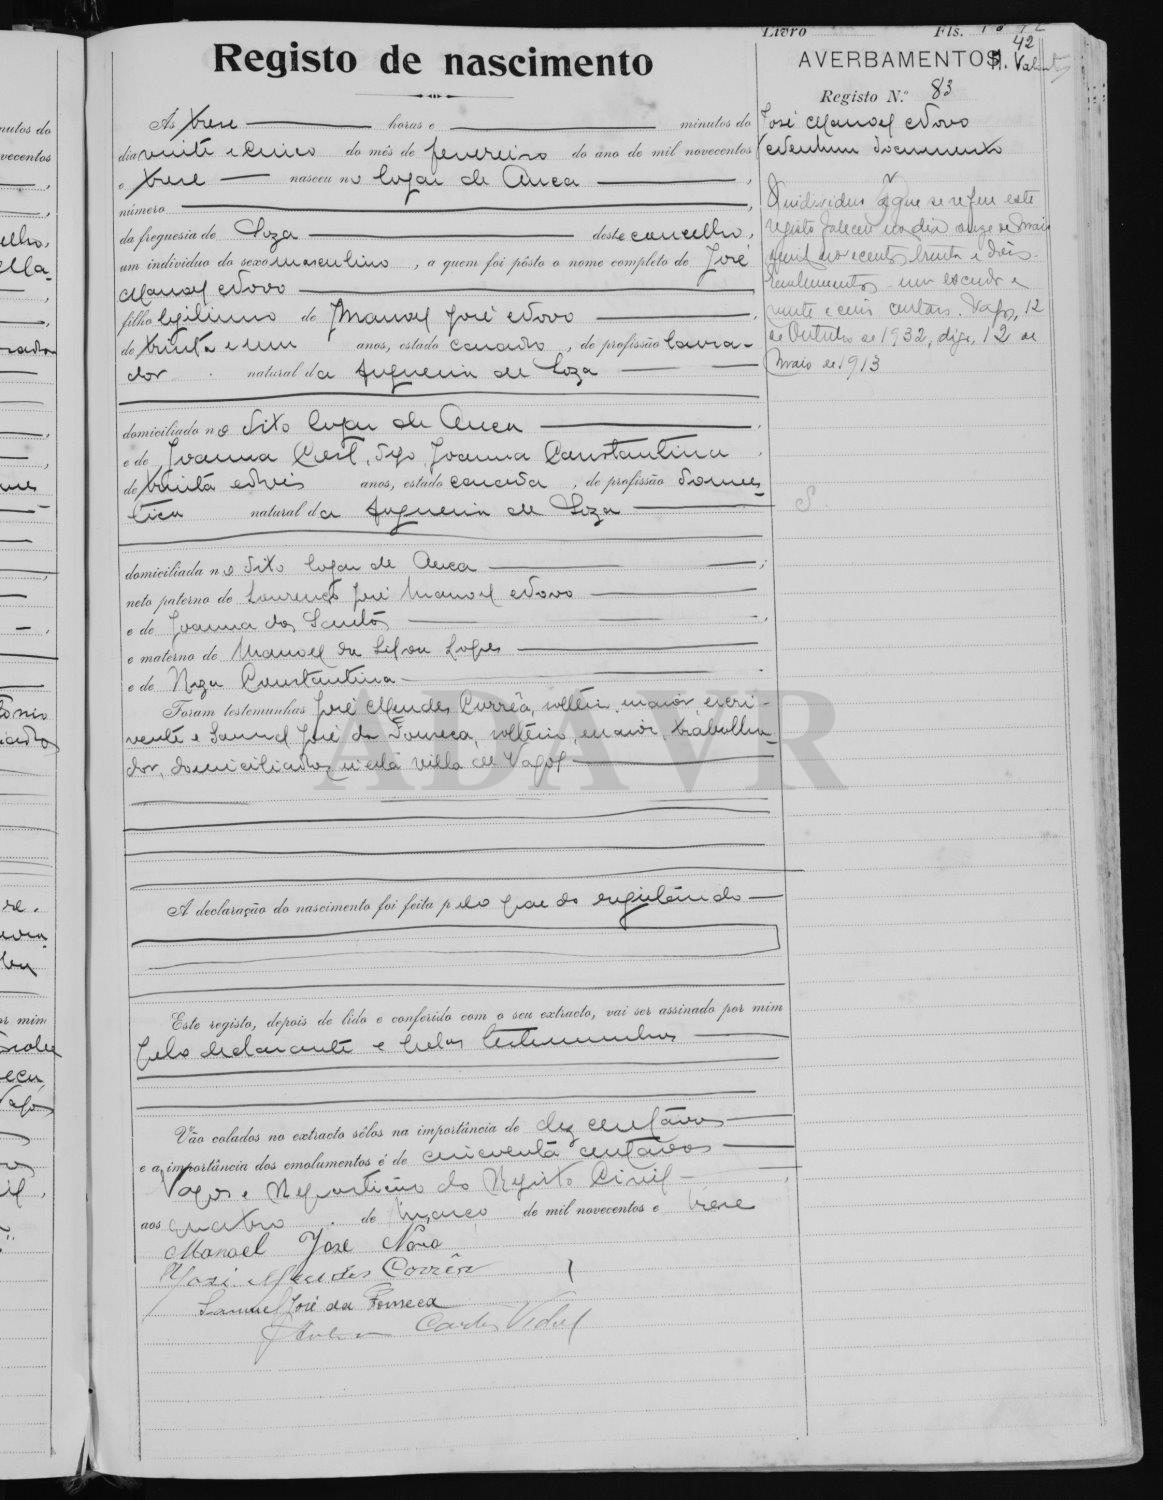 Livro Fls. 42
Registo de nascimento
AVERBAMENTOS
Registo N.º 83
As treze horas e minutos do
dia vinte e cinco do mês de fevereiro do ano de mil novecentos
e treze nasceu no logar de Ouca,
número,
da freguesia de Soza deste concelho,
um individuo do sexo masculino, a quem foi pôsto o nome completo de José
Manoel Novo
filho legitimo de Manoel José Novo,
de trinta e um anos, estado casado, de profissão lavra-
dor natural da freguesia de Soza
domiciliado no dito logar de Ouca,
e de Joanna digo Joanna Constantina,
de trinta e dois anos, estado casada, de profissão domes-
tica natural da freguesia de Soza
domiciliada no dito logar de Ouca;
neto paterno de Lourenço José Manoel Novo
e de Joanna dos Santos,
e materno de Manoel da Lopes
e de Roza Constantina.
Foram testemunhas José Mendes Corrêa, solteiro, maior, escri-
vente e Samuel José da Fonseca, solteiro, maior, trabalha-
dor, domiciliados n'esta villa de Vagos
A declaração do nascimento foi feita pelo pae do registando
Este registo, depois de lido e conferido com o seu extracto, vai ser assinado por mim
pelo declarante e pelas testemunhas
Vão colados no extracto sêlos na importância de dez centavos
e a importância dos emolumentos é de cincoenta centavos
Vagos e Repartição do Registo Civil
aos quatro de Março de mil novecentos e treze
Manoel José Novo
José Mendes Corrêa
Samuel José da Fonseca
Carlos Vidal
José Manoel Novo
Nenhum documento
O individuo a que se refere este
registo faleceu no dia onze de maio
mil novecentos trinta e dois.
Emolumentos um escudo e
vinte e cinco centavos. Vagos, 12
de Outubro de 1932, digo, 12 de
Maio de 1913
ADAVR